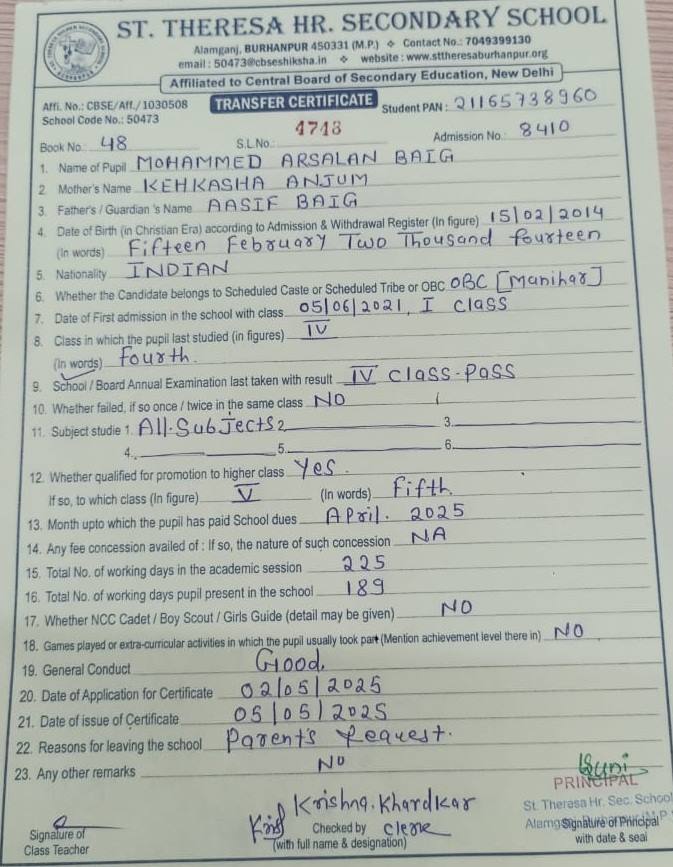 ST. THERESA HR. SECONDARY SCHOOL
Alamganj, BURHANPUR 450331 (M.P.) ❖ Contact No.: 7049399130
email : 50473@cbseshiksha.in ❖ website : www.sttheresaburhanpur.org
Affiliated to Central Board of Secondary Education, New Delhi
Affi. No.: CBSE/Aff./1030508 TRANSFER CERTIFICATE Student PAN : 21165738960
School Code No.: 50473
Book No. 48 S.L.No. 4743 Admission No. 8410
1. Name of Pupil MOHAMMED ARSALAN BAIG
2. Mother's Name KEHKASHA ANJUM
3. Father's / Guardian 's Name AASIF BAIG
4. Date of Birth (in Christian Era) according to Admission & Withdrawal Register (In figure) 15/02/2014
(In words) Fifteen February Two Thousand fourteen
5. Nationality INDIAN
6. Whether the Candidate belongs to Scheduled Caste or Scheduled Tribe or OBC OBC [Manihar]
7. Date of First admission in the school with class 05/06/2021, I class
8. Class in which the pupil last studied (in figures) IV
(In words) fourth.
9. School / Board Annual Examination last taken with result IV class-Pass
10. Whether failed, if so once / twice in the same class NO
11. Subject studie 1. All-Subjects 2. 3.
4. 5. 6.
12. Whether qualified for promotion to higher class Yes.
If so, to which class (In figure) V (In words) Fifth
13. Month upto which the pupil has paid School dues April. 2025
14. Any fee concession availed of : If so, the nature of such concession NA
15. Total No. of working days in the academic session 225
16. Total No. of working days pupil present in the school 189
17. Whether NCC Cadet / Boy Scout / Girls Guide (detail may be given) NO
18. Games played or extra-curricular activities in which the pupil usually took part (Mention achievement level there in) NO
19. General Conduct Good.
20. Date of Application for Certificate 02/05/2025
21. Date of issue of Certificate 05/05/2025
22. Reasons for leaving the school Parent's Request.
23. Any other remarks NO
PRINCIPAL
Krishna. Khardkar St. Theresa Hr. Sec. School
Signature of Checked by Clerk Signature of Principal
Class Teacher (with full name & designation) with date & seal